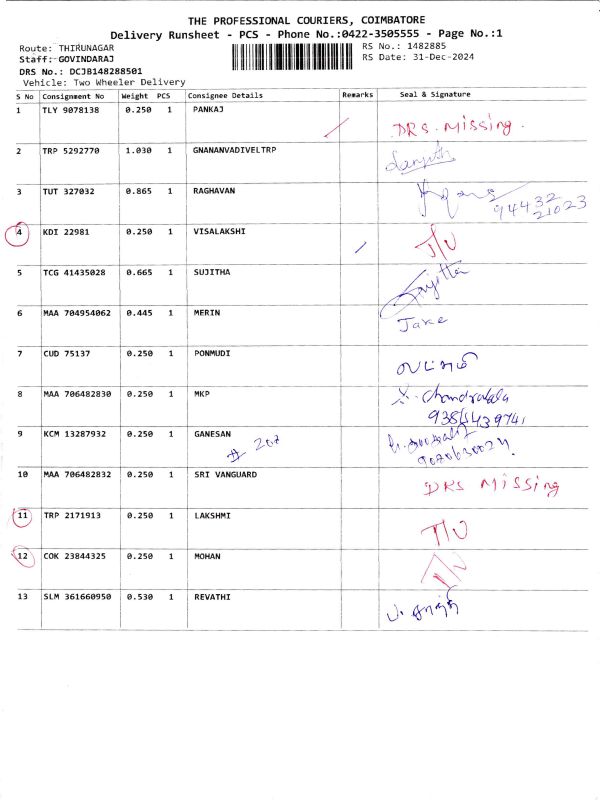 THE PROFESSIONAL COURIERS, COIMBATORE
Delivery Runsheet - PCS - Phone No.:0422-3505555 - Page No.:1
Route: THIRUNAGAR RS No.: 1482885
Staff: GOVINDARAJ RS Date: 31-Dec-2024
DRS No.: DCJB148288501
Vehicle: Two Wheeler Delivery
S No Consignment No Weight PCS Consignee Details Remarks Seal & Signature
1 TLY 9078138 0.250 1 PANKAJ
DRS. MISSING.
2 TRP 5292770 1.030 1 GNANANVADIVELTRP
3 TUT 327032 0.865 1 RAGHAVAN
94432
21023
4 KDI 22981 0.250 1 VISALAKSHI
5 TCG 41435028 0.665 1 SUJITHA
6 MAA 704954062 0.445 1 MERIN
7 CUD 75137 0.250 1 PONMUDI
8 MAA 706482830 0.250 1 MKP
9 KCM 13287932 0.250 1 GANESAN
# 207
10 MAA 706482832 0.250 1 SRI VANGUARD
DRS MISSING
11 TRP 2171913 0.250 1 LAKSHMI
12 COK 23844325 0.250 1 MOHAN
13 SLM 361660950 0.530 1 REVATHI